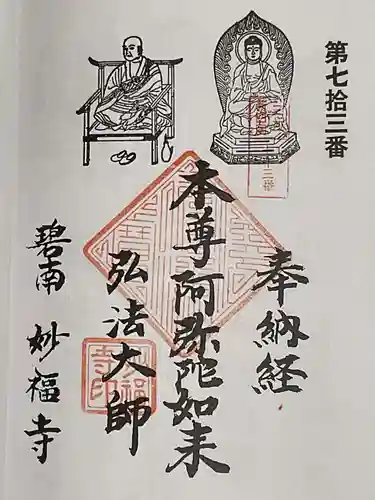 第七拾三番
奉納経
本尊阿弥陀如来
弘法大師
碧南 妙福寺